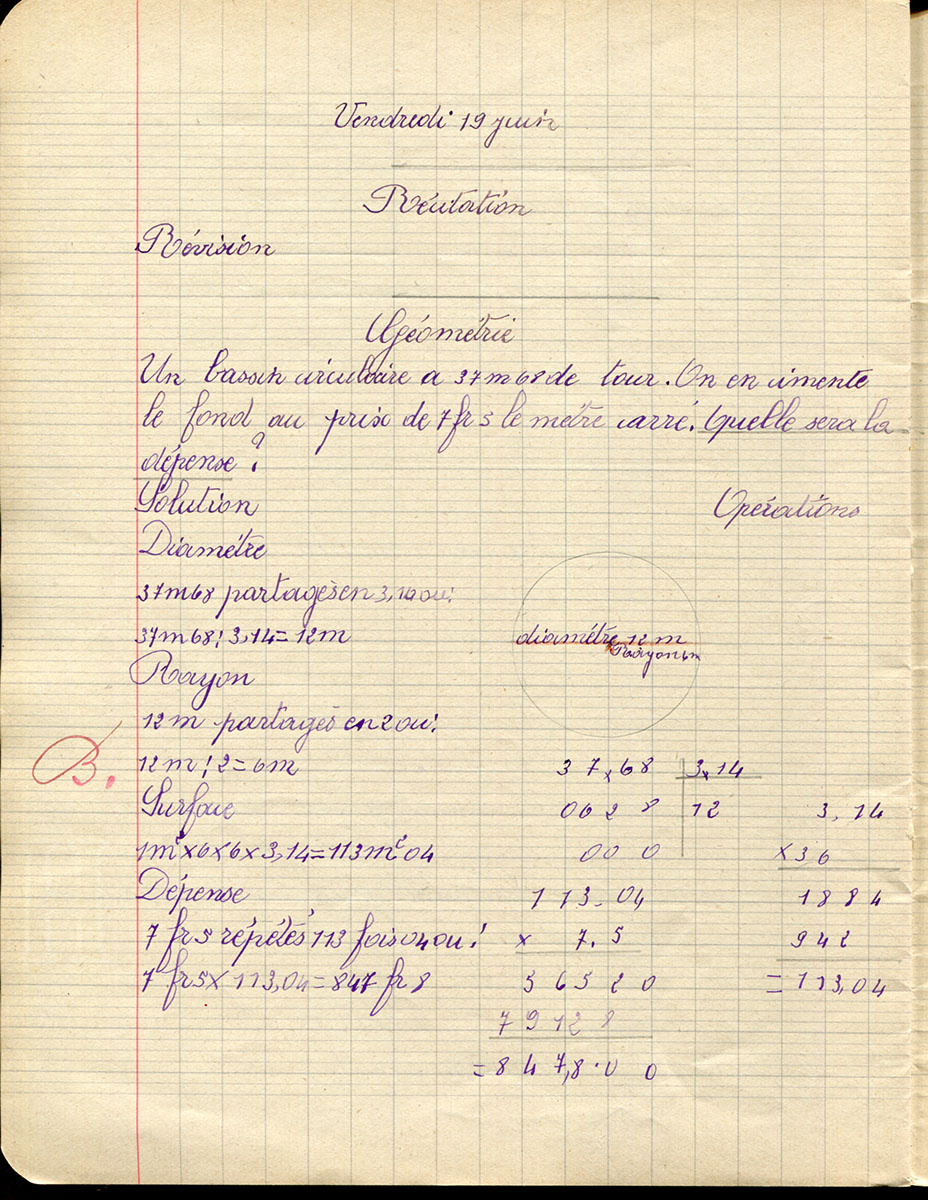 Vendredi 19 juin
Récitation
Révision
Géométrie
Un bassin circulaire a 37m68 de tour. On en cimente
le fond au prix de 7fr5 le mètre carré. Quelle sera la
dépense?
Solution
Opérations
Diamètre
37m68 partagés en 3,14 ou:
37m68 : 3,14 = 12m
diamétre 12 m
Rayon 6m
Rayon
12m partagés en 2 ou:
B.
12m : 2 = 6m
37,68 3,14
Surface
0628 12 3,14
1m² x 6 x 6 x 3,14 = 113m²04
000 x36
Dépense
113.04 1884
7 fr5 répétés 113 fois 04 ou:
x 7.5 942
7 fr5 x 113,04 = 847 fr 8
56520 = 113,04
79128
= 847,8.00